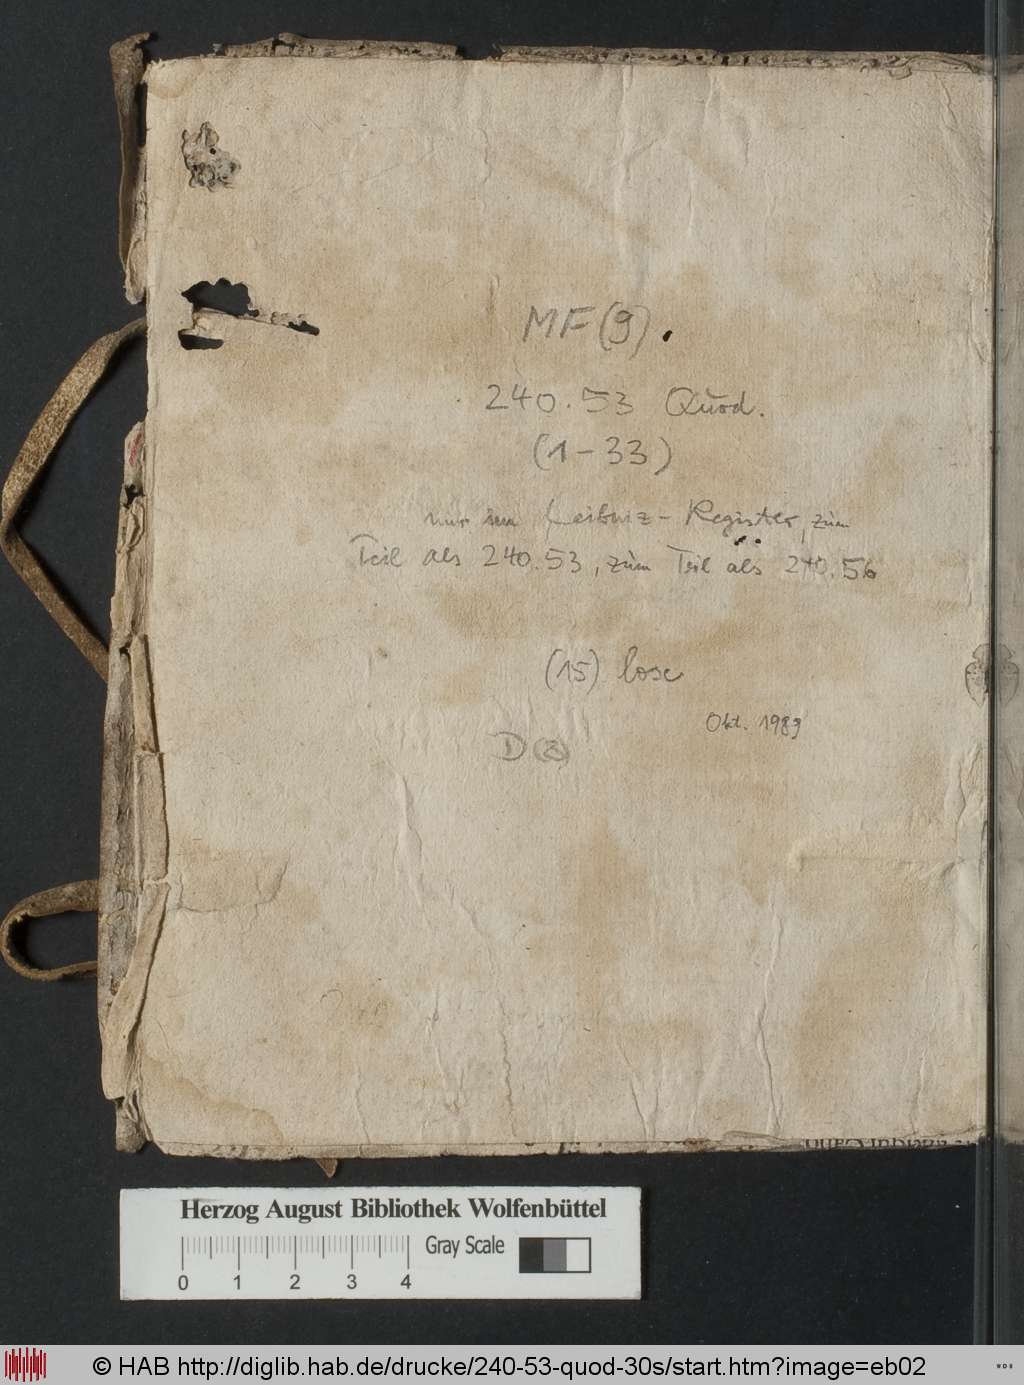 MF(9).
240.53 Quod.
(1-33)
nur im Leibniz-Register, zum
Teil als 240.53, zum Teil als 240.56
(15) lose
Okt. 1989
D
Herzog August Bibliothek Wolfenbüttel
Gray Scale
0 1 2 3 4
© HAB http://diglib.hab.de/drucke/240-53-quod-30s/start.htm?image=eb02